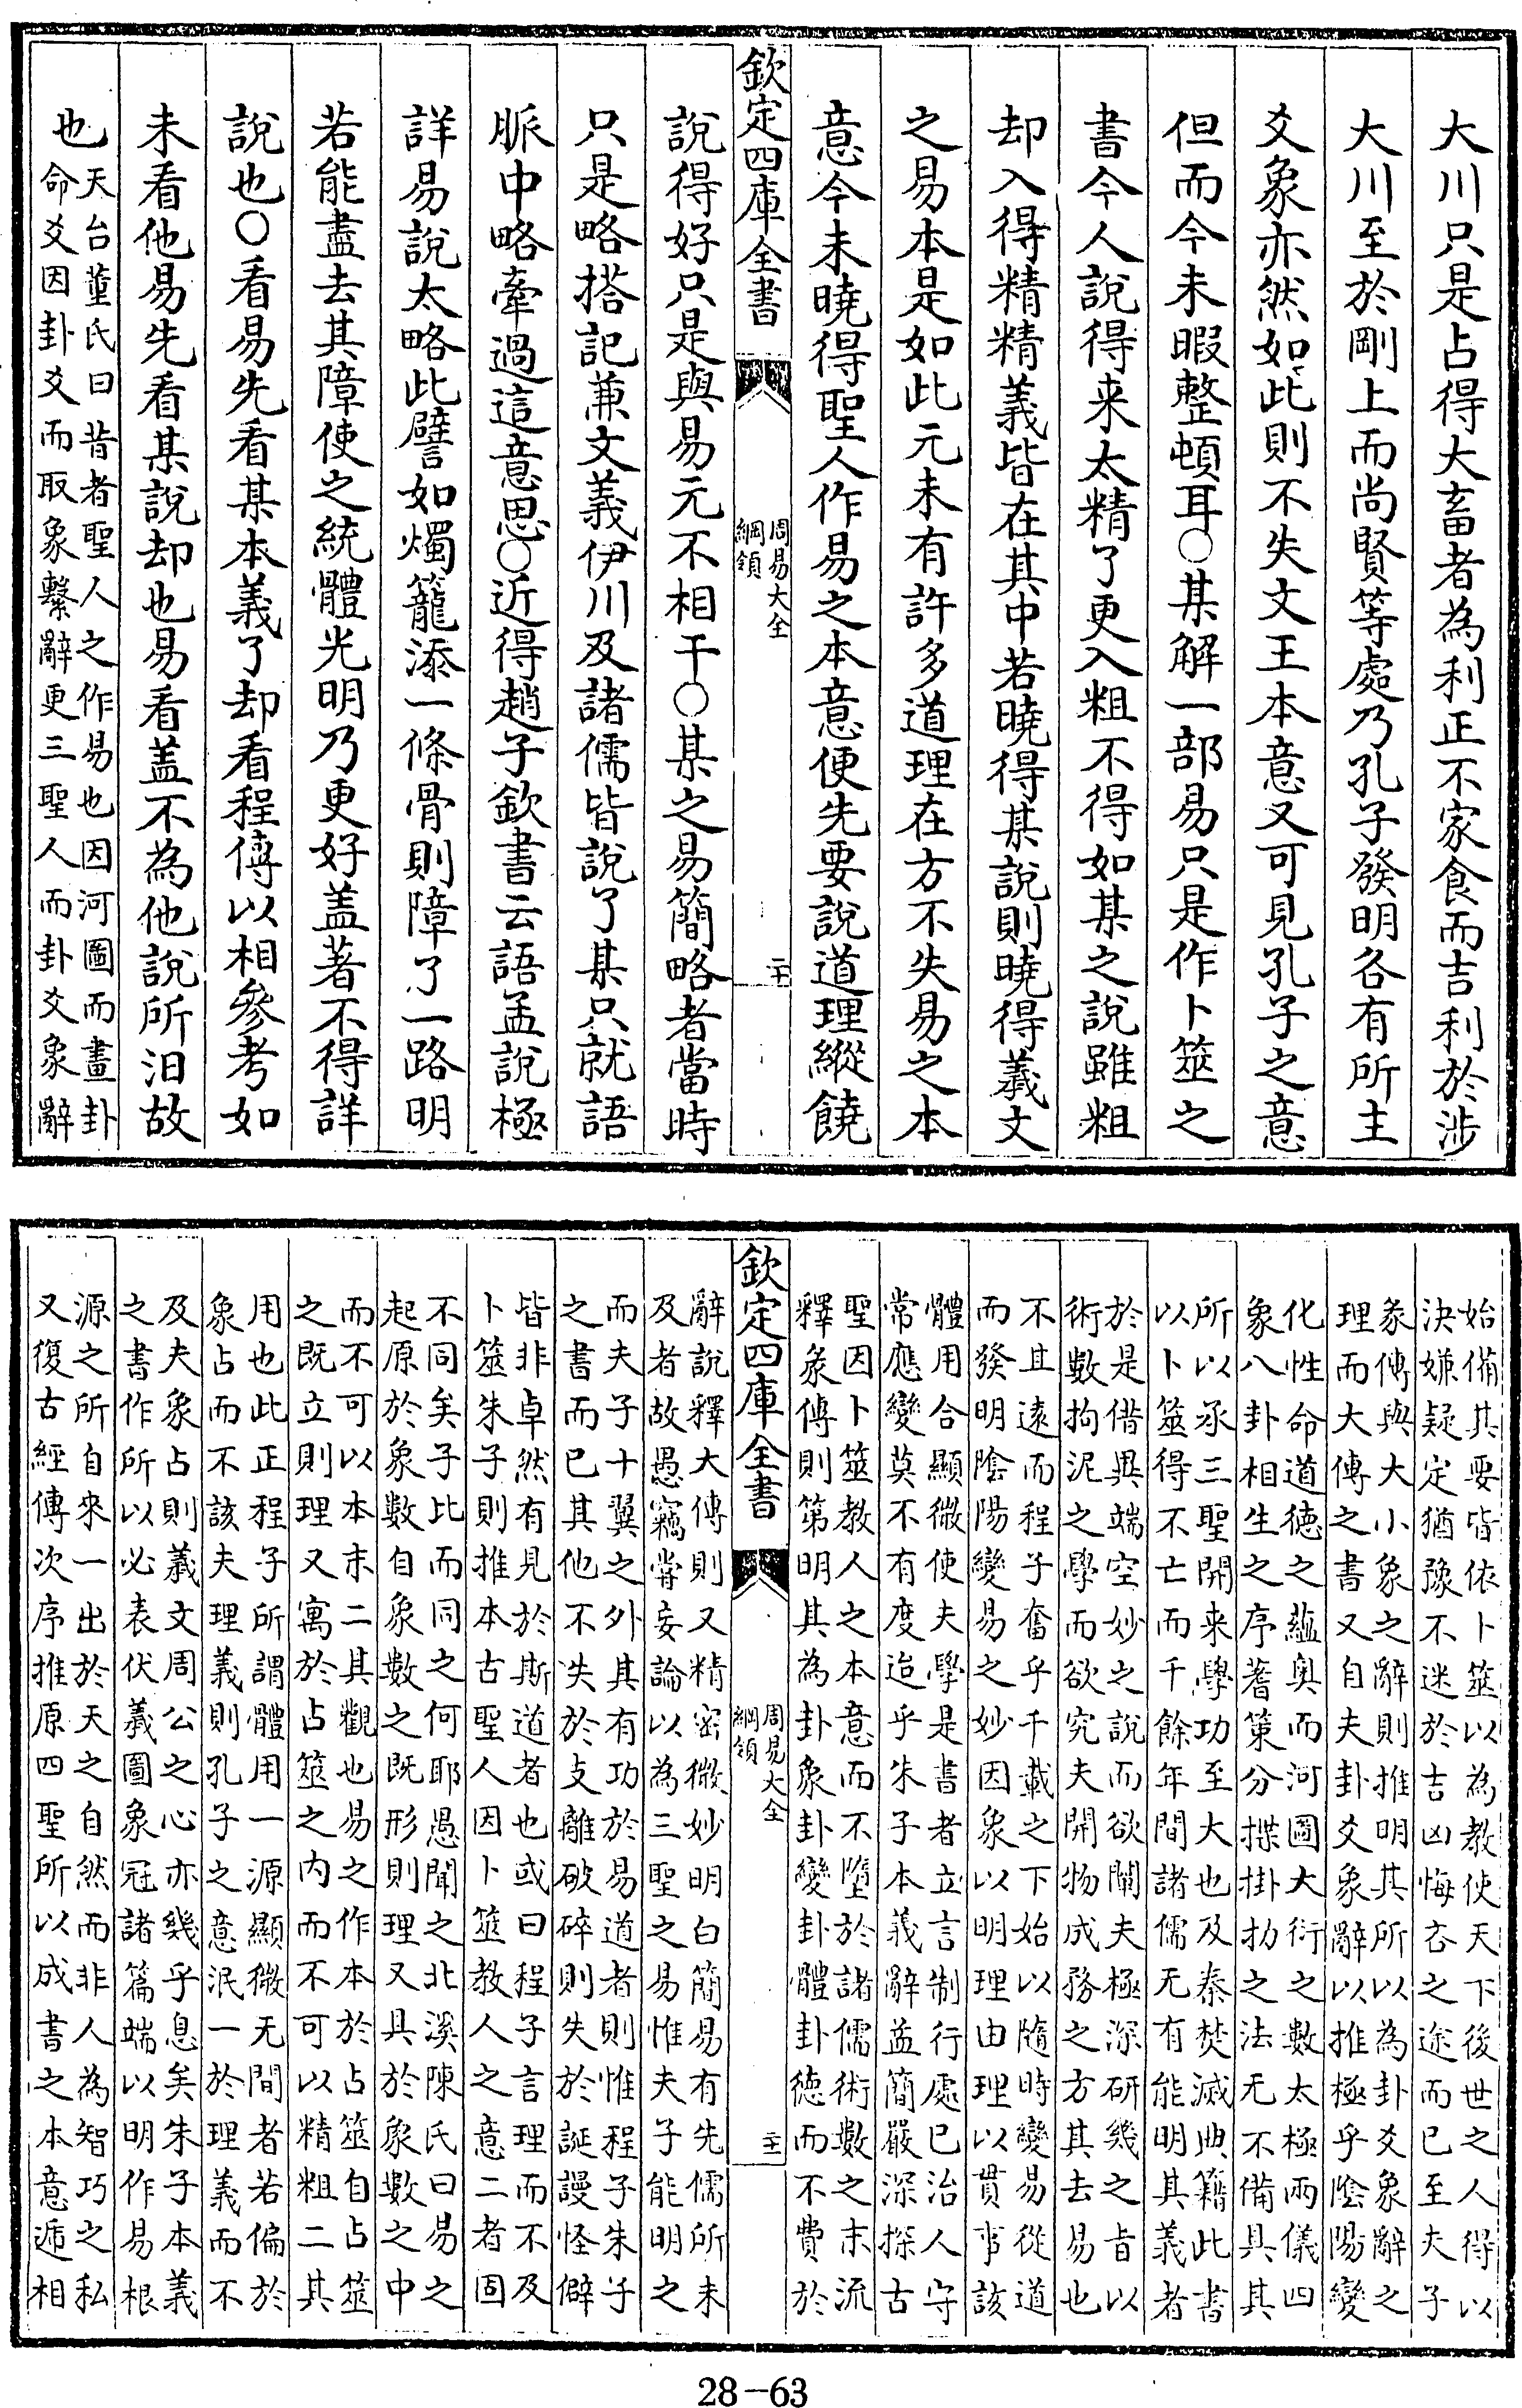 大川只是占得大畜者為利正不家食而吉利於涉
大川至於剛上而尚賢等處乃孔子發明各有所主
爻象亦然如此則不失文王本意又可見孔子之意
但而今未暇整頓耳○某解一部易只是作卜筮之
書今人說得来太精了更入粗不得如某之說雖粗
却入得精精義皆在其中若曉得某說則曉得羲文
之易本是如此元未有許多道理在方不失易之本
意今未曉得聖人作易之本意便先要說道理縱饒
欽定四庫全書
周易大全
綱領
二十
說得好只是與易元不相干○某之易簡略者當時
只是略搭記兼文義伊川及諸儒皆說了某只就語
脈中略牽過這意思○近得趙子欽書云語孟說極
詳易說太略此譬如燭籠添一條骨則障了一路明
若能盡去其障使之統體光明乃更好盖著不得詳
說也○看易先看某本義了却看程傳以相參考如
未看他易先看某說却也易看盖不為他說所汨故
也
天台董氏曰昔者聖人之作易也因河圖而畫卦
命爻因卦爻而取象繫辭更三聖人而卦爻象辭
始備其要皆依卜筮以為教使天下後世之人得以
決嫌疑定猶豫不迷於吉凶悔吝之途而已至夫子
彖傳與大小象之辭則推明其所以為卦爻象辭之
理而大傳之書又自夫卦爻象辭以推極乎陰陽變
化性命道德之蘊奥而河圖大衍之數太極兩儀四
象八卦相生之序蓍策分揲掛扐之法无不備具其
所以承三聖開来學功至大也及秦焚滅典籍此書
以卜筮得不亡而千餘年間諸儒无有能明其義者
於是借異端空妙之說而欲闡夫極深研幾之旨以
術數拘泥之學而欲究夫開物成務之方其去易也
不且遠而程子奮乎千載之下始以隨時變易從道
而發明陰陽變易之妙因象以明理由理以貫事該
體用合顯微使夫學是書者立言制行處已治人守
常應變莫不有度迨乎朱子本義辭益簡嚴深探古
聖因卜筮教人之本意而不墮於諸儒術數之末流
釋彖傳則第明其為卦象卦變卦體卦德而不費於
欽定四庫全書
周易大全
綱領
二十一
辭說釋大傳則又精密微妙明白簡易有先儒所未
及者故愚竊甞妄論以為三聖之易惟夫子能明之
而夫子十翼之外其有功於易道者則惟程子朱子
之書而已其他不失於支離破碎則失於誕謾怪僻
皆非卓然有見於斯道者也或曰程子言理而不及
卜筮朱子則推本古聖人因卜筮教人之意二者固
不同矣子比而同之何耶愚聞之北溪陳氏曰易之
起原於象數自象數之既形則理又具於象數之中
而不可以本末二其觀也易之作本於占筮自占筮
之既立則理又寓於占筮之内而不可以精粗二其
用也此正程子所謂體用一源顯微无間者若偏於
象占而不該夫理義則孔子之意泯一於理義而不
及夫象占則羲文周公之心亦幾乎息矣朱子本義
之書作所以必表伏羲圖象冠諸篇端以明作易根
源之所自來一出於天之自然而非人為智巧之私
又復古經傳次序推原四聖所以成書之本意逓相
28-63